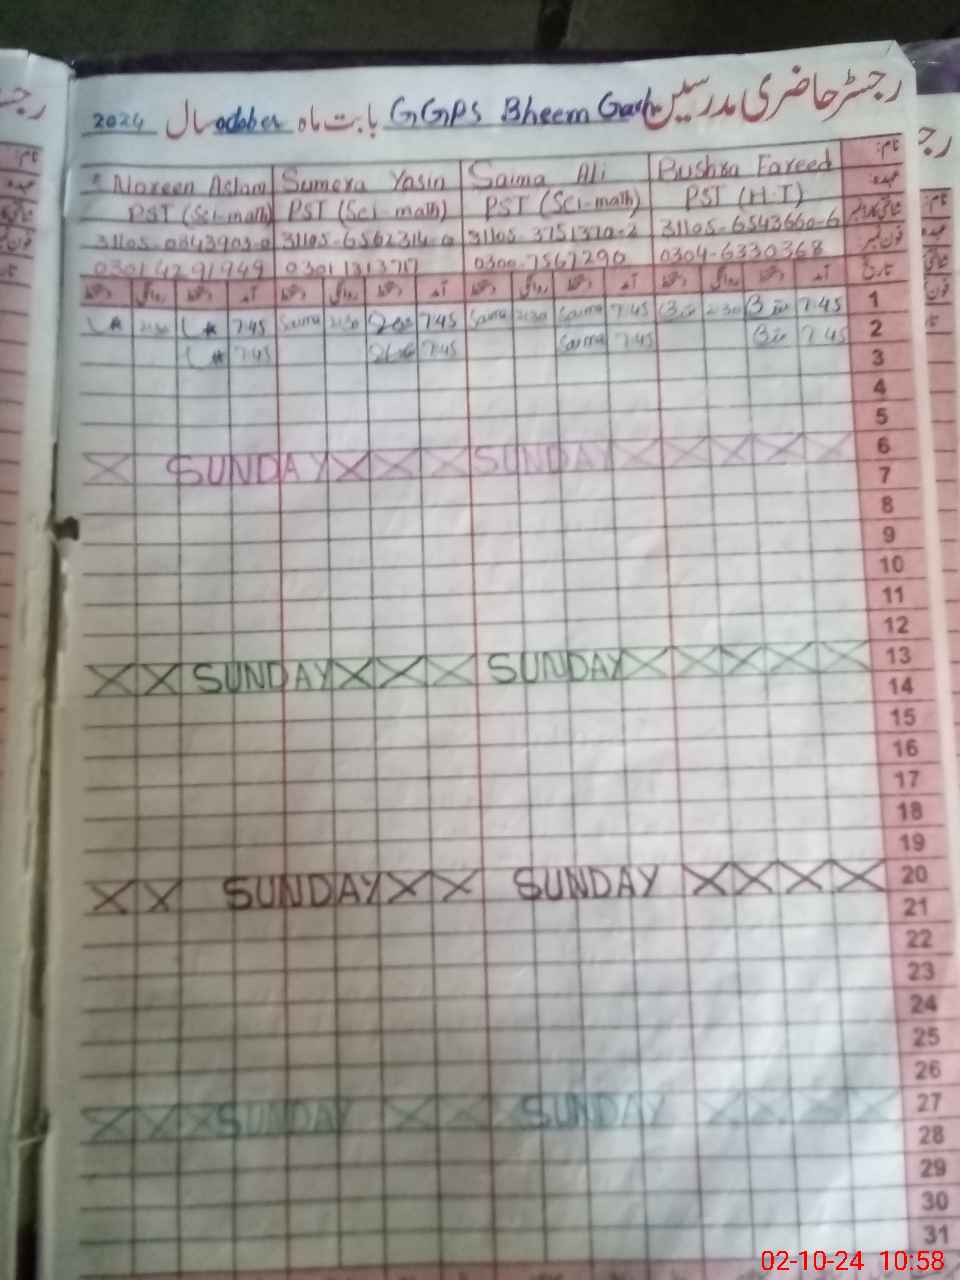 رجسٹر حاضری مدرسین GGPS Bheem Garh بابت ماہ october سال 2024
نام: Bushra Fareed Saima Ali Sumera Yasin Nazeen Aslam
عہدہ: PST (H-T) PST (Sci-math) PST (Sci-math) PST (Sci-math)
شناختی کارڈ نمبر 31105-6543660-6 31105.3751370-2 31105-6562314-0
فون نمبر: 0304-6330368 0300-7567290 0301
تاریخ آمد دستخط روانگی دستخط آمد دستخط روانگی دستخط آمد دستخط روانگی دستخط آمد دستخط روانگی دستخط
1 7.45 2.30 7.45 Saima 2:30 7.45 2:30 7.45 2:30
2 7.45 7.45 Saima 7.45 7.45
3
4
5
6 SUNDAY SUNDAY
7
8
9
10
11
12
13 SUNDAY SUNDAY
14
15
16
17
18
19
20 SUNDAY SUNDAY
21
22
23
24
25
26
27 SUNDAY SUNDAY
28
29
30
31
02-10-24 10:58